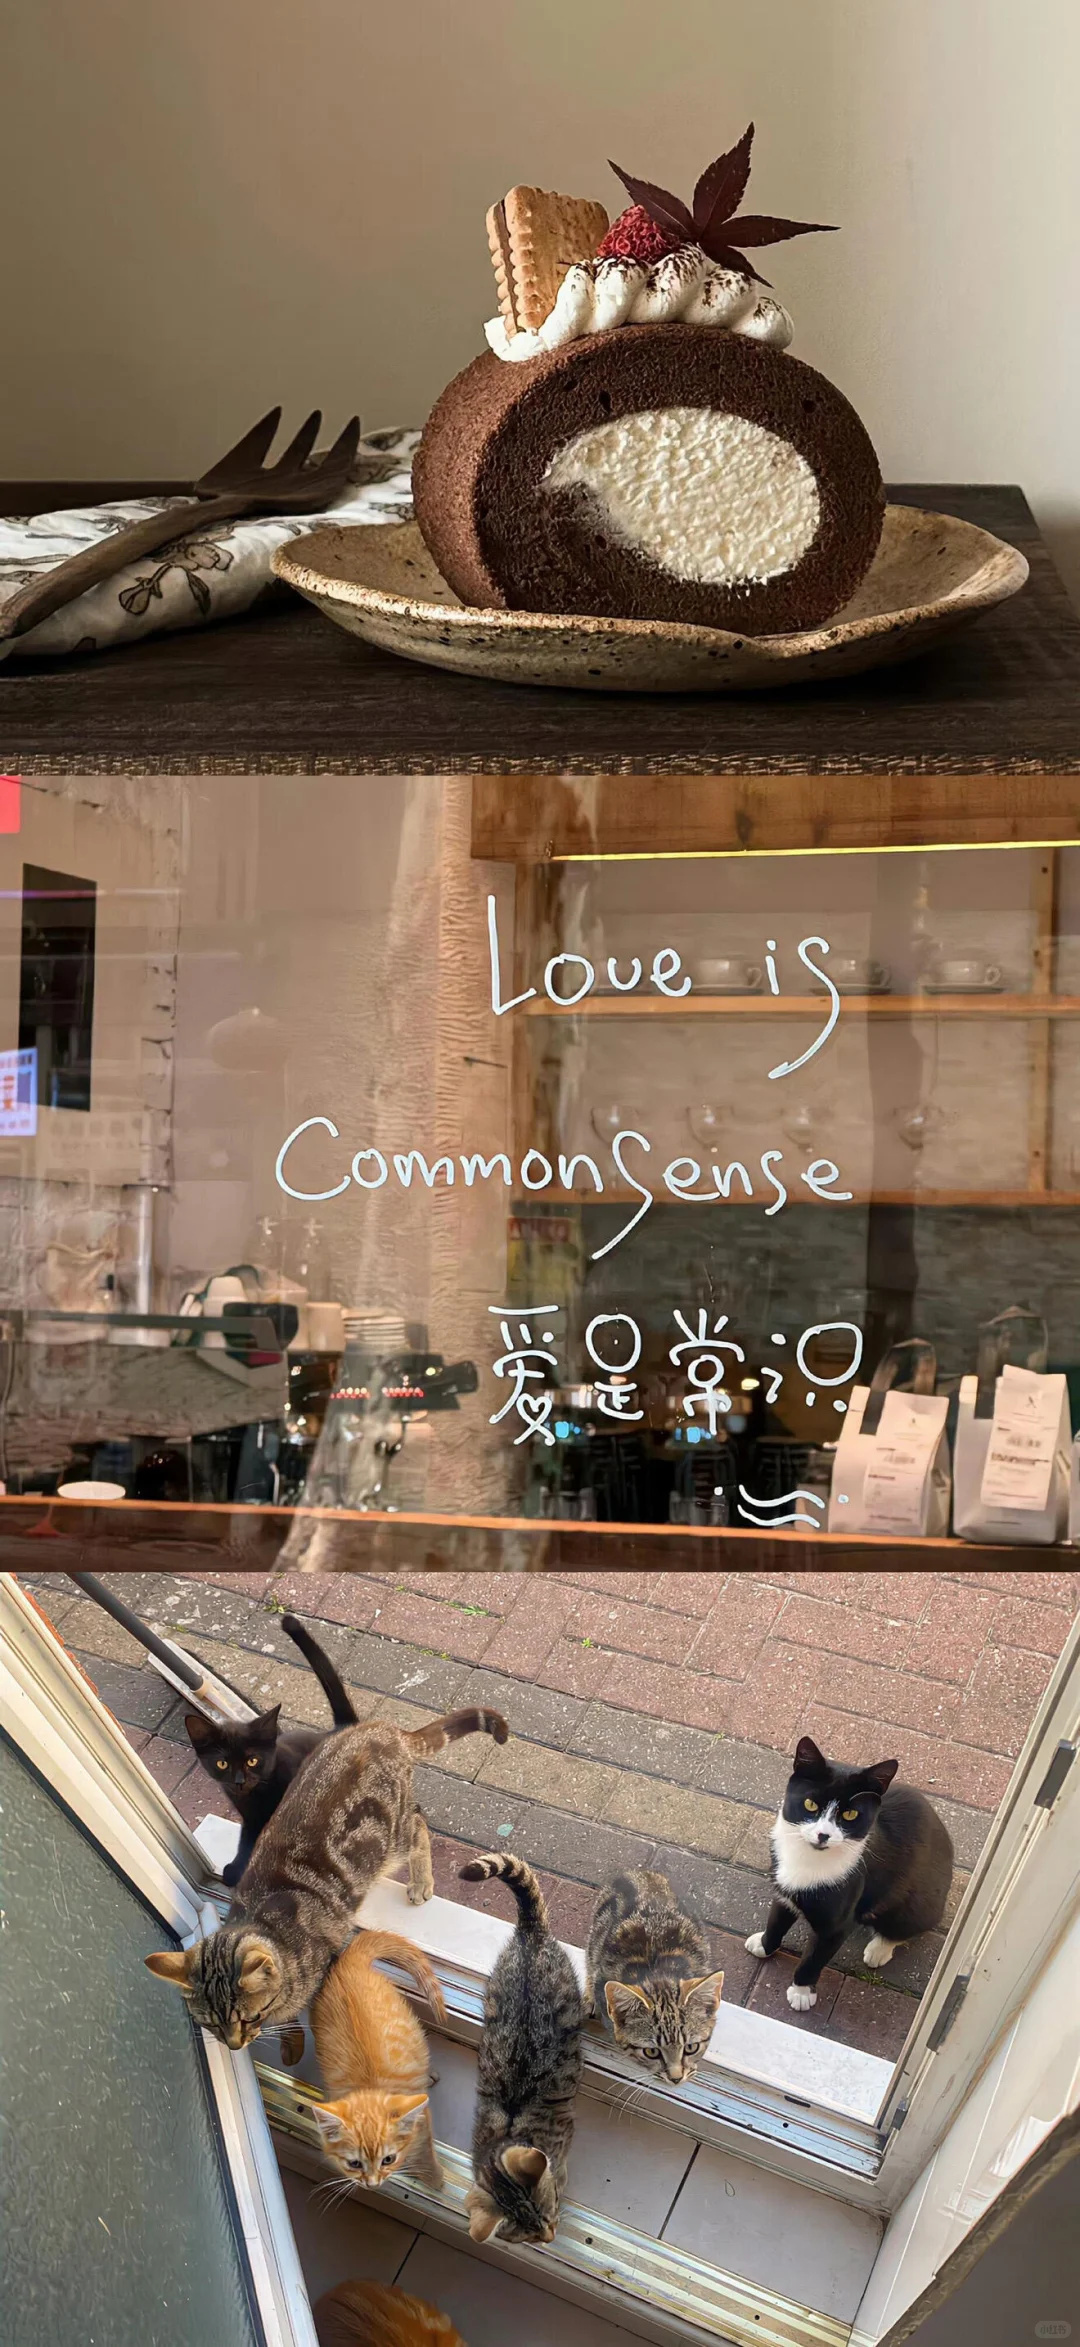 Love is
Commonsense
爱是常识
小红书